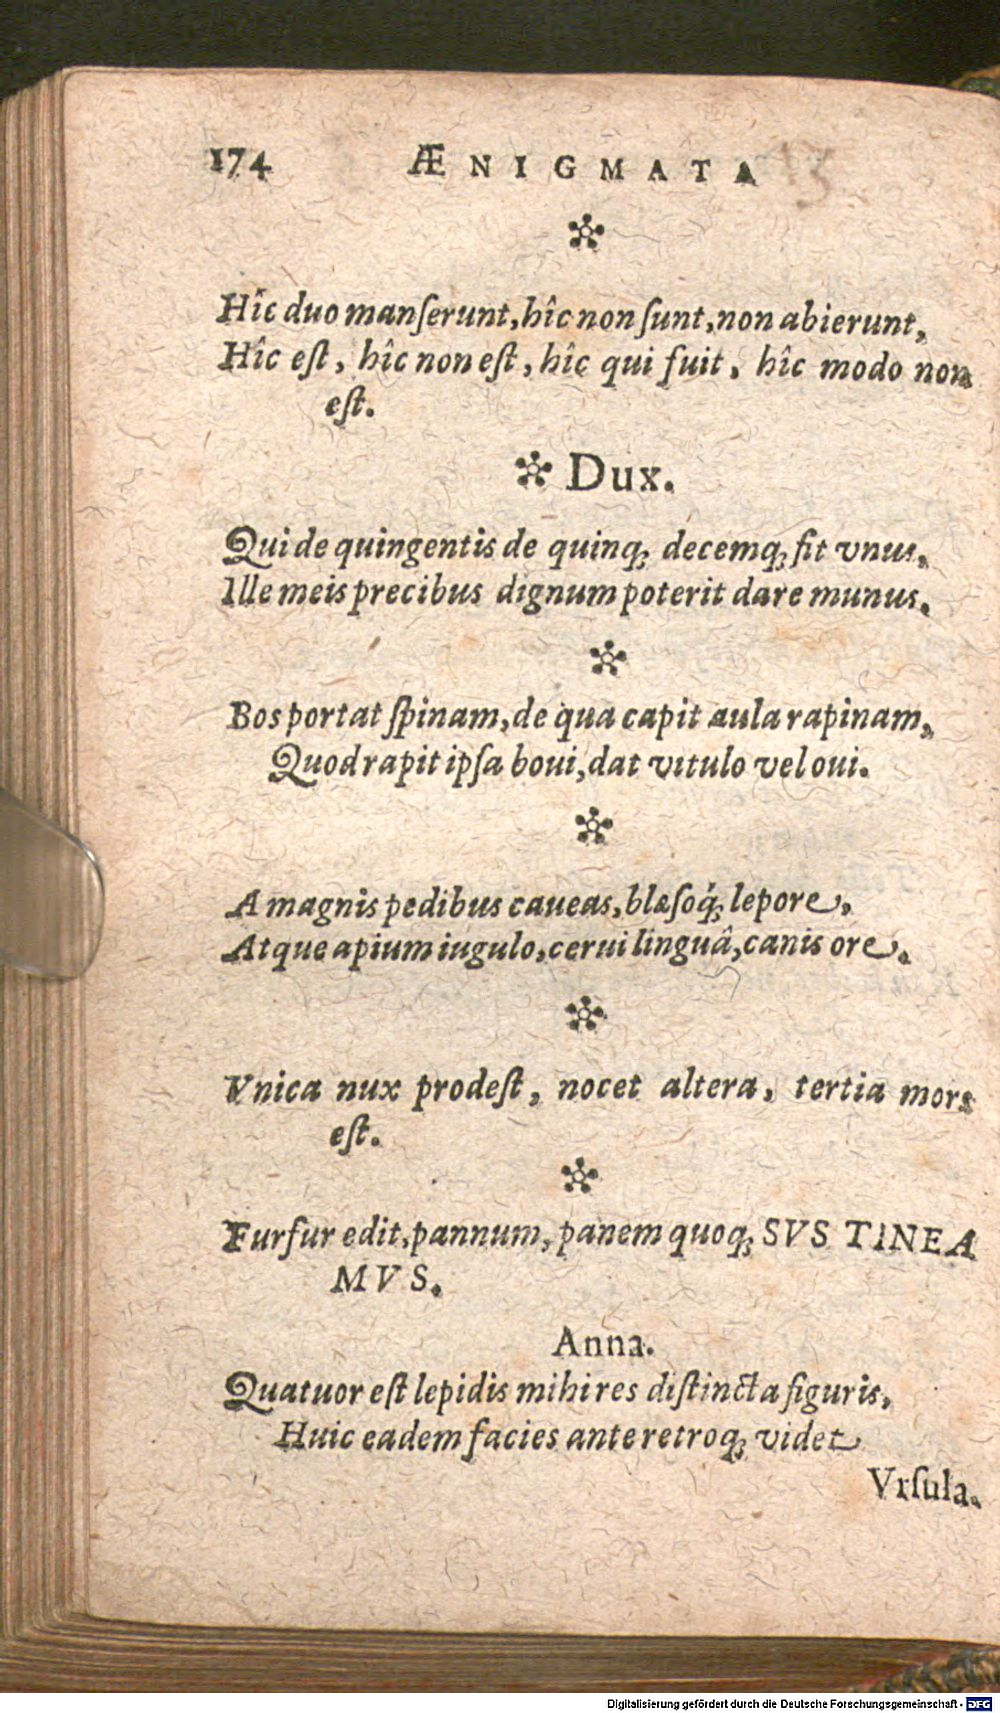 174 ÆNIGMATA
Hîc duo manſerunt, hîc non ſunt, non abierunt,
Hîc eſt, hîc non eſt, hîc qui fuit, hîc modo non
eſt.
Dux.
Qui de quingentis de quinq; decemq; fit vnus,
Ille meis precibus dignum poterit dare munus.
Bos portat ſpinam, de qua capit aula rapinam,
Quod rapit ipſa boui, dat vitulo vel oui.
A magnis pedibus caueas, blæſoq́; lepore,
Atque apium iugulo, cerui linguâ, canis ore.
Vnica nux prodeſt, nocet altera, tertia mors
eſt.
Furfur edit, pannum, panem quoq; SVS TINEA
MVS.
Anna.
Quatuor eſt lepidis mihi res diſtincta figuris,
Huic eadem facies ante retroq; videt
Vrſula.
Digitalisierung gefördert durch die Deutsche Forschungsgemeinschaft - DFG